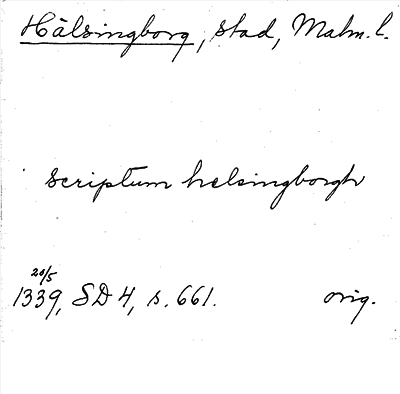 Hälsingborg, stad, Malm. l.
scriptum helsingborgh
20/5
1339, SD 4, s. 661. orig.